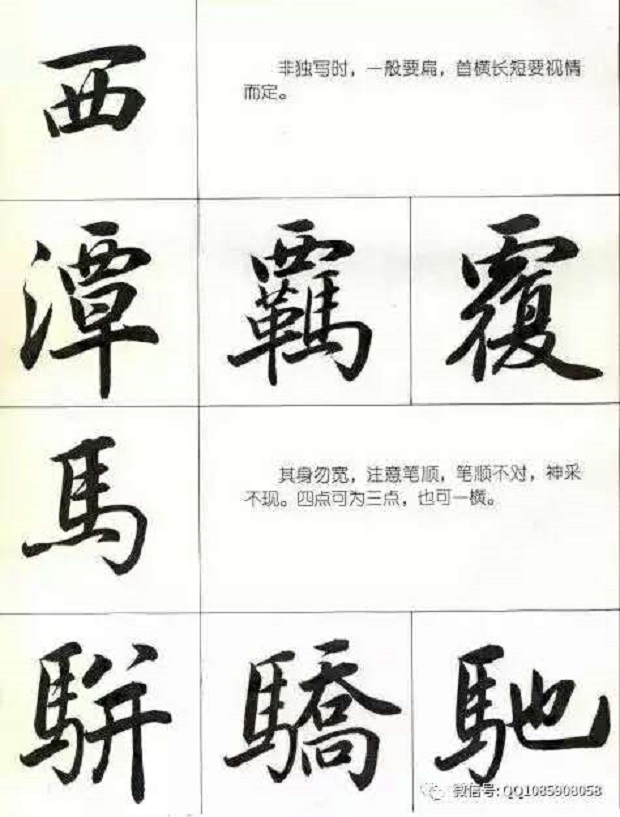 西
非独写时，一般要扁，首横长短要视情
而定。
潭 羈 覆
馬
其身勿宽，注意笔顺，笔顺不对，神采
不现。四点可为三点，也可一横。
駢 驕 馳
微信号: QQ1085908058